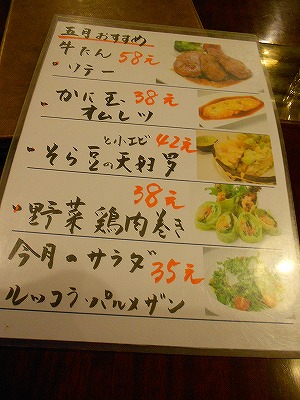 五月おすすめ
牛たん 58元
ソテー
かに玉 38元
オムレツ
と小エビ 42元
そら豆の天婦罗
38元
野菜鶏肉巻き
今月のサラダ 35元
ルッコラ・パルメザン